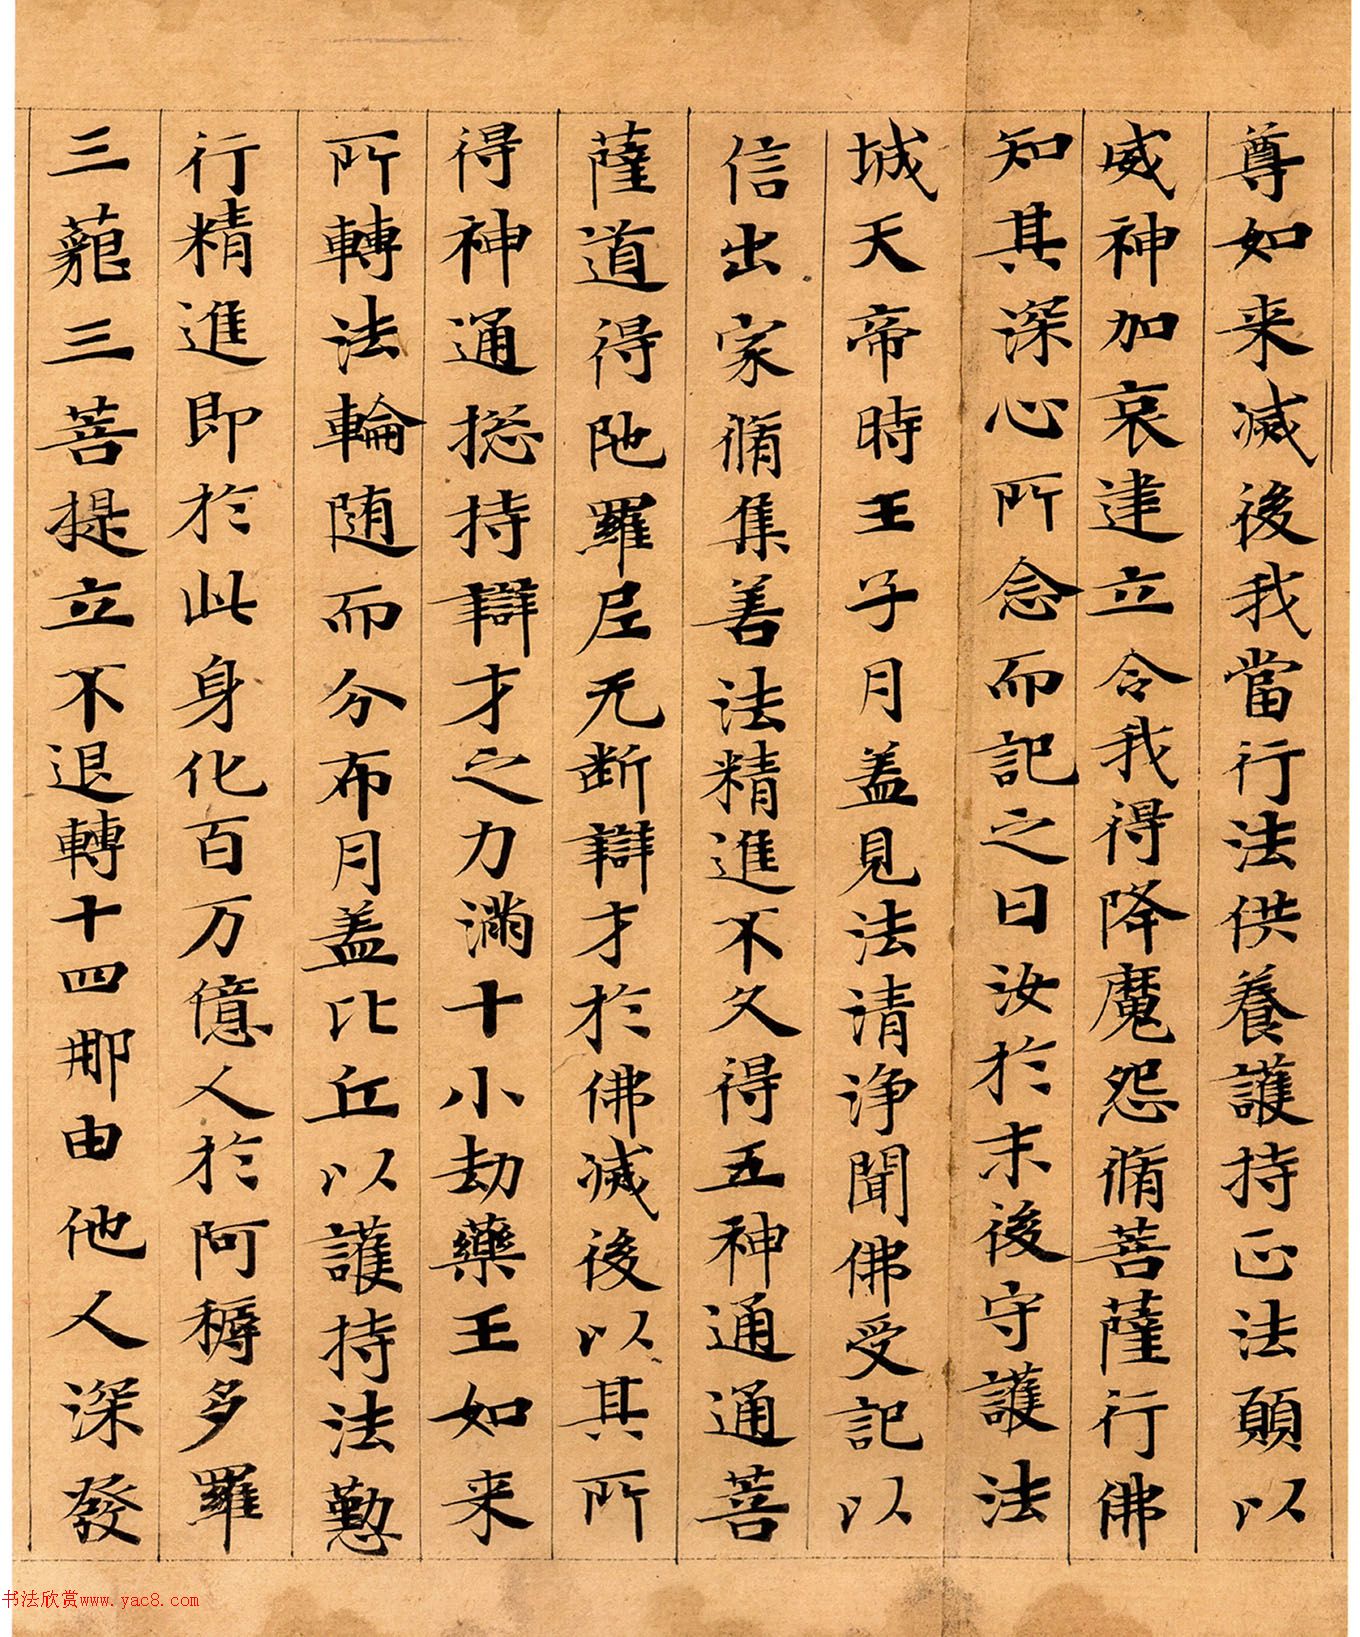 尊如来滅後我當行法供養護持正法願以
威神加哀建立令我得降魔怨脩菩薩行佛
知其深心所念而記之曰汝於末後守護法
城天帝時王子月盖見法清淨聞佛受記以
信出家脩集善法精進不久得五神通通菩
薩道得陁羅尼无断辯才於佛滅後以其所
得神通捴持辯才之力滿十小劫藥王如来
所轉法輪随而分布月盖比丘以護持法懃
行精進即於此身化百万億人於阿耨多羅
三藐三菩提立不退轉十四那由他人深發
书法欣赏www.yac8.com